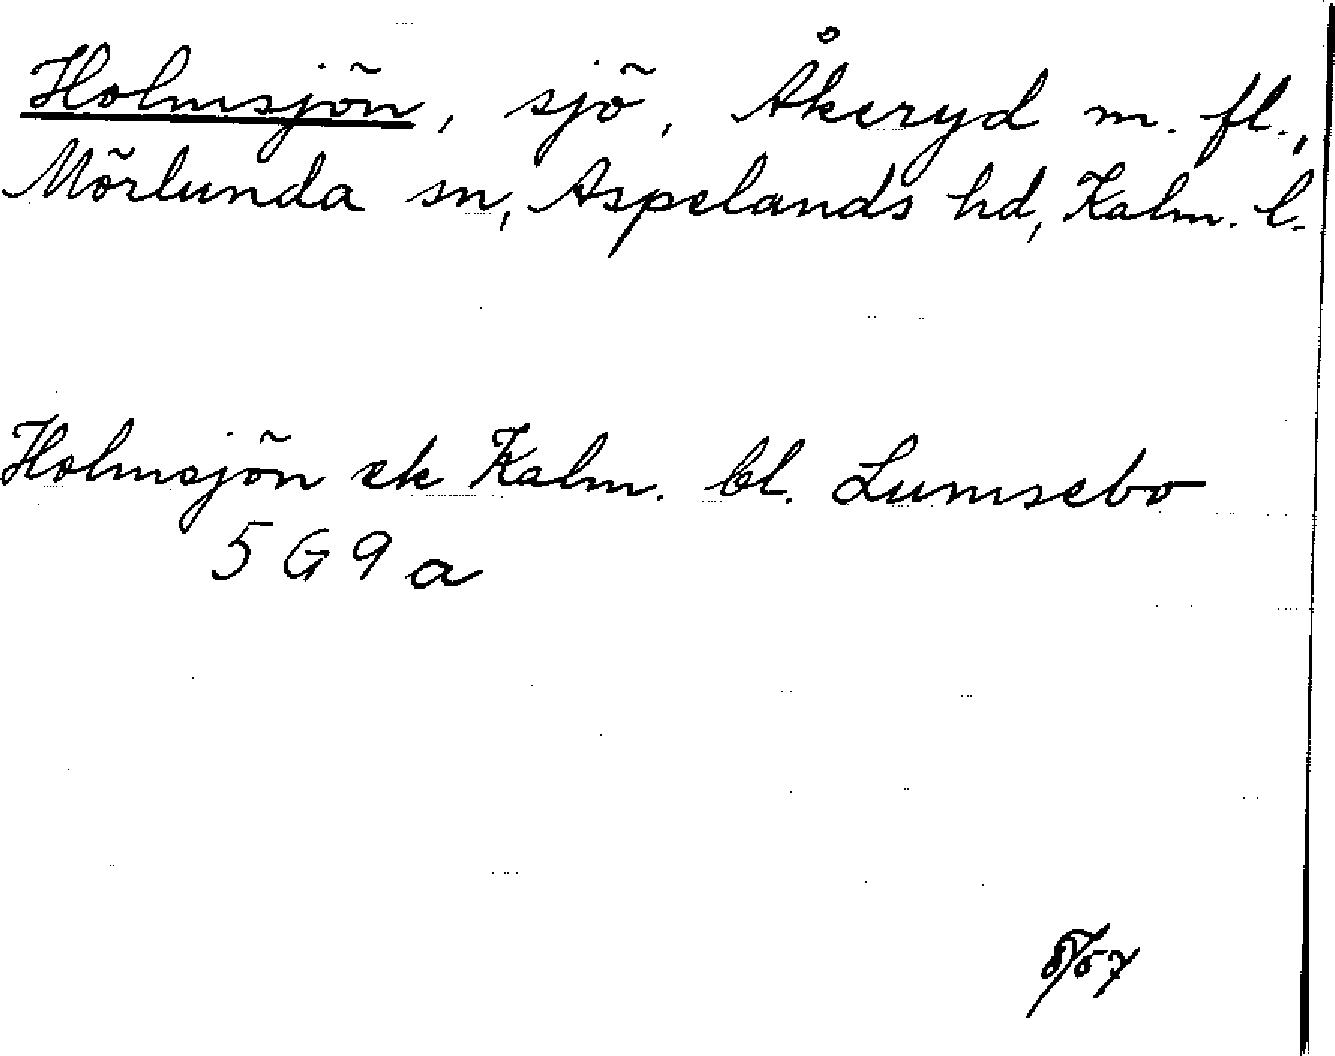 Holmsjön, sjö, Åkeryd m. fl.,
Mörlunda sn, Aspelands hd, Kalm. l.
Holmsjön ek Kalm. bl. Lumsebo
5 G 9 a